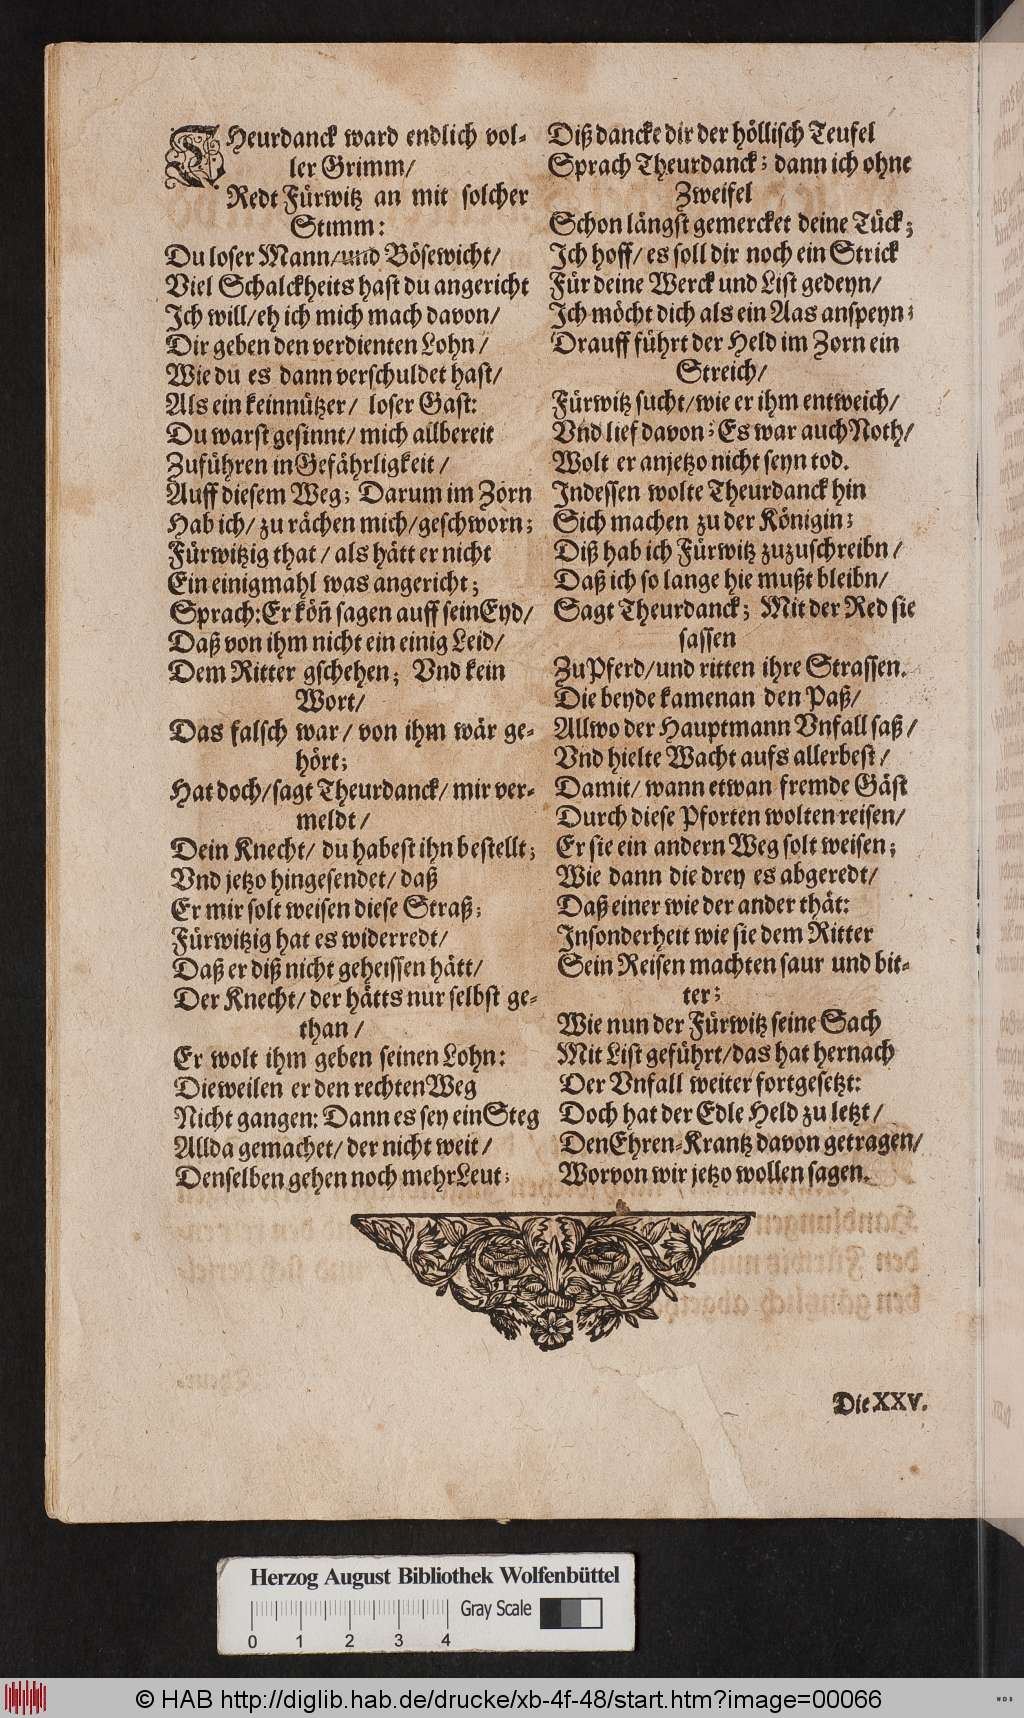 THeurdanck ward endlich vol-
ler Grimm/
Redt Fürwitz an mit solcher
Stimm:
Du loser Mann/und Bösewicht/
Viel Schalckheits hast du angericht
Ich will/eh ich mich mach davon/
Dir geben den verdienten Lohn/
Wie du es dann verschuldet hast/
Als ein keinnützer/ loser Gast:
Du warst gesinnt/ mich allbereit
Zuführen in Gefährligkeit/
Auff diesem Weg; Darum im Zorn
Hab ich/ zu rächen mich/geschworn;
Fürwitzig that/ als hätt er nicht
Ein einigmahl was angericht;
Sprach: Er köñ sagen auff sein Eyd/
Daß von ihm nicht ein einig Leid/
Dem Ritter gschehen; Vnd kein
Wort/
Das falsch war/ von ihm wär ge-
hört;
Hat doch/sagt Theurdanck/ mir ver-
meldt/
Dein Knecht/ du habest ihn bestellt;
Vnd jetzo hingesendet/ daß
Er mir solt weisen diese Straß;
Fürwitzig hat es widerredt/
Daß er diß nicht geheissen hätt/
Der Knecht/ der hätts nur selbst ge-
than/
Er wolt ihm geben seinen Lohn:
Dieweilen er den rechten Weg
Nicht gangen: Dann es sey ein Steg
Allda gemachet/ der nicht weit/
Denselben gehen noch mehr Leut;
Diß dancke dir der höllisch Teufel
Sprach Theurdanck; dann ich ohne
Zweifel
Schon längst gemercket deine Tück;
Ich hoff/ es soll dir noch ein Strick
Für deine Werck und List gedeyn/
Ich möcht dich als ein Aas anspeyn;
Drauff führt der Held im Zorn ein
Streich/
Fürwitz sucht/wie er ihm entweich/
Vnd lief davon; Es war auch Noth/
Wolt er anjetzo nicht seyn tod.
Indessen wolte Theurdanck hin
Sich machen zu der Königin;
Diß hab ich Fürwitz zuzuschreibn/
Daß ich so lange hie mußt bleibn/
Sagt Theurdanck; Mit der Red sie
sassen
Zu Pferd/und ritten ihre Strassen.
Die beyde kamen an den Paß/
Allwo der Hauptmann Vnfall saß/
Vnd hielte Wacht aufs allerbest/
Damit/ wann etwan fremde Gäst
Durch diese Pforten wolten reisen/
Er sie ein andern Weg solt weisen;
Wie dann die drey es abgeredt/
Daß einer wie der ander thät:
Insonderheit wie sie dem Ritter
Sein Reisen machten saur und bit-
ter;
Wie nun der Fürwitz seine Sach
Mit List geführt/das hat hernach
Der Vnfall weiter fortgesetzt:
Doch hat der Edle Held zu letzt/
Den Ehren-Krantz davon getragen/
Worvon wir jetzo wollen sagen.
Die XXV.
Herzog August Bibliothek Wolfenbüttel
Gray Scale
0 1 2 3 4
© HAB http://diglib.hab.de/drucke/xb-4f-48/start.htm?image=00066